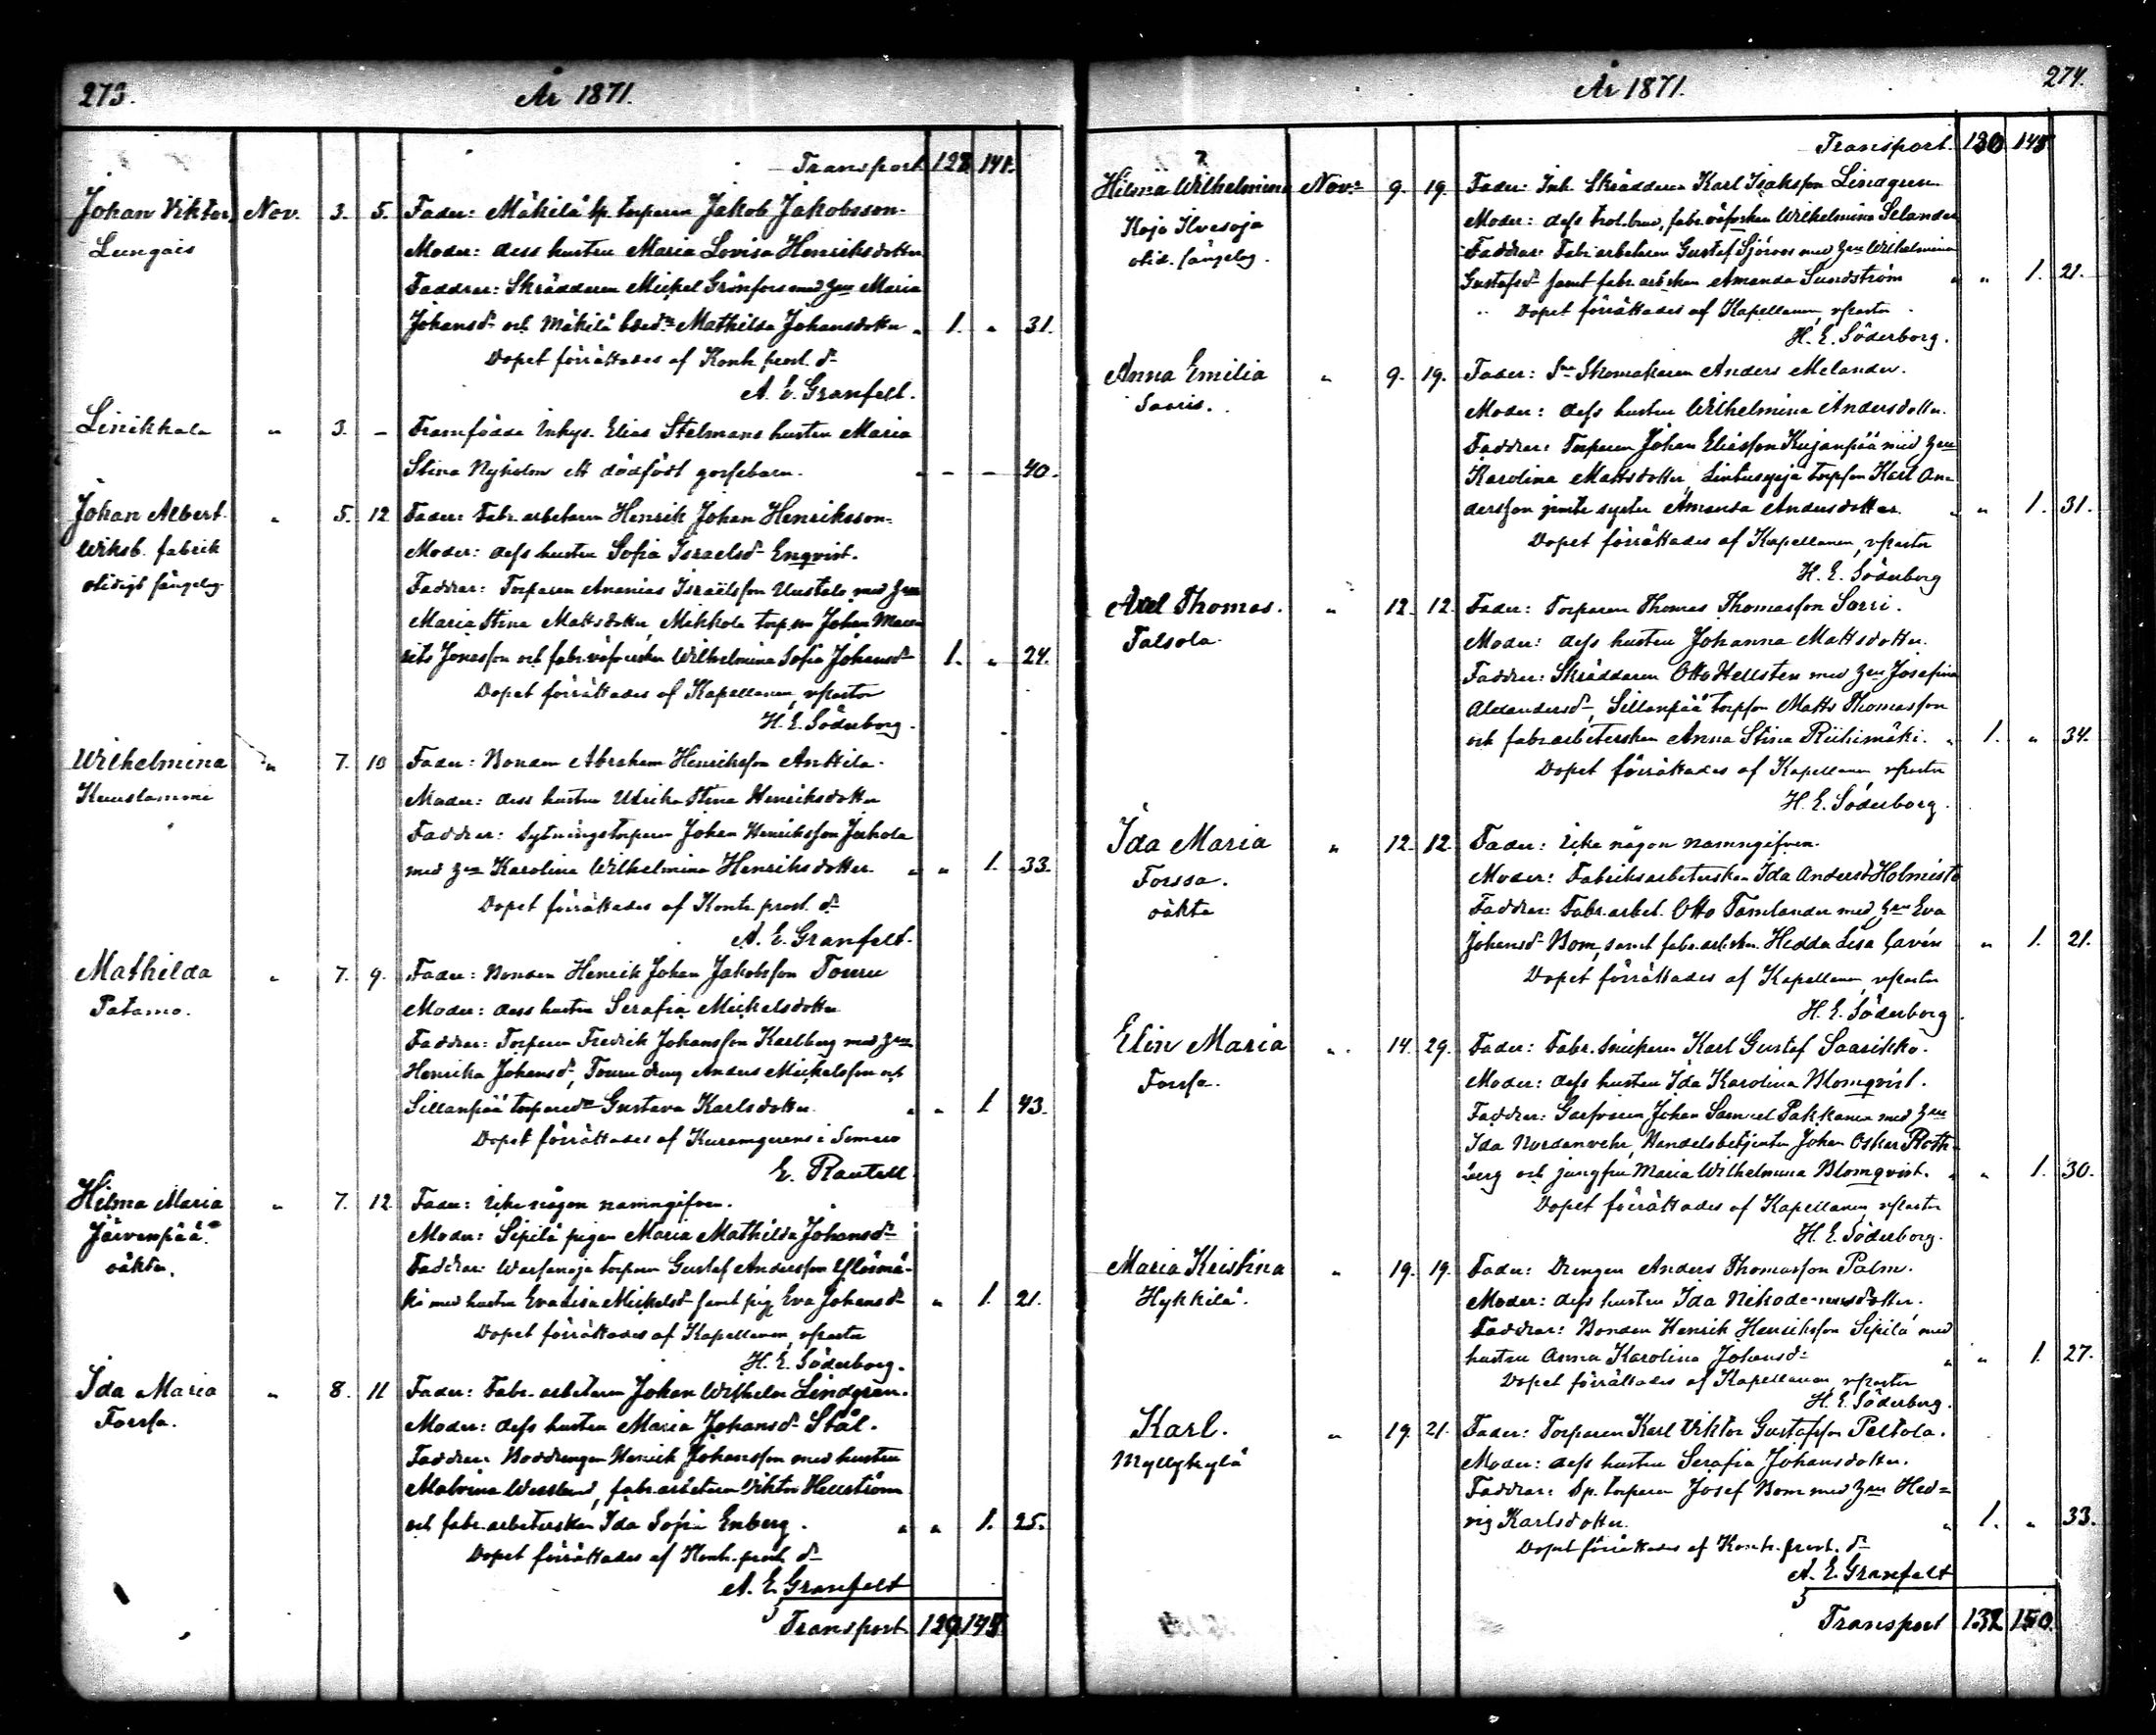 273.
År 1871.
Transport 128 141.
Johan Viktor, Nov. 3. 5. Fader: Mäkilä sp. torparen Jakob Jakobsson.
Lungais Moder: dess hustru Maria Lovisa Henriksdotter
Faddrar: Skräddaren Mickel Grönfors med hru Maria
Johansdr och Mäkilä bdr Mathilda Johansdotter " 1. " 31.
Dopet förrättades af Kontr. prost. dr
A. E. Granfelt.
Linikkala " 3. - Framfödde Inhys. Elias Stelmans hustru Maria
Stina Nyholm ett dödfödt gossebarn. - - - 40.
Johan Albert " 5. 12 Fader: Fabr. arbetaren Henrik Johan Henriksson.
Wiksb. fabrik Moder: dess hustru Sofia Israelsdr Enqvist.
Faddrar: Torparen Ananias Israelsson Uustalo med hru
Maria Stina Mattsdotter, Mikkola torp.son Johan Mau
rits Jonasson och fabr. Wilhelmina Sofia Johansdr 1. " 24.
Dopet förrättades af Kapellanen, vpastor
H. E. Söderborg.
Wilhelmina " 7. 10 Fader: Bonden Abraham Henriksson Anttila.
Kuuslammi Moder: dess hustru Ulrika Stina Henriksdotter
Faddrar: Sytningstorparen Johan Henriksson
med hru Karolina Wilhelmina Henriksdotter. " " 1. 33.
Dopet förrättades af Kontr. prost. dr
A. E. Granfelt.
Mathilda " 7. 9. Fader: Bonden Henrik Johan Jakobsson Touru
Patamo. Moder: dess hustru Serafia Mickelsdotter
Faddrar: Torparen Fredrik Johansson Karlberg med hru
Henrika Johansdr, Touru dreng Anders Mickelsson och
Sillanpää torparedr Gustava Karlsdotter. " " 1 43.
Dopet förrättades af i Somero
E. Rautell
Hilma Maria " 7. 12 Fader: Icke någon namngifven.
Järvenpää. Moder: Sipilä pigan Maria Mathilda Johansdr
oäkta. Faddrar: Warsanoja torparen Gustaf Andersson Ylösmä-
ki med hustru Eva Lisa Mickelsdr samt pig. Eva Johansdr " 1. 21.
Dopet förrättades af Kapellanen, vpastor
H. E. Söderborg.
Ida Maria " 8. 11 Fader: Fabr. arbetaren Johan Wilhelm Lindgren.
Forssa. Moder: dess hustru Maria Johansdr Stål.
Faddrar: Boddrengen Henrik Johansson med hustru
Malvina, fabr. arbetaren Viktor Hellström
och fabr. arbeterskan Ida Sofia Enberg. " " 1. 25.
Dopet förrättades af Kontr. prost. dr
A. E. Granfelt
Transport 129 145
274.
År 1871.
Transport. 130 145
Hilma Wilhelmina Nov. 9. 19. Fader: Inh. Skräddaren Karl Isaksson Lindgren
Kojo Ilvesoja Moder: dess trol. brud, fabr. Wilhelmina Selander
Faddrar: Fabr. arbetaren Gustaf Sjöroos med hru Wilhelmina
Gustafsdr samt fabr. arb.skan Amanda Sundström " " 1. 21.
Dopet förrättades af Kapellanen, vpastor
H. E. Söderborg.
Anna Emilia " 9. 19. Fader: Skomakaren Anders Melander.
Saaris. Moder: dess hustru Wilhelmina Andersdotter.
Faddrar: Torparen Johan Eliasson Kujanpää med hru
Karolina Mattsdotter, torpson Karl An-
dersson jemte syster Amanda Andersdotter. " " 1. 31.
Dopet förrättades af Kapellanen, vpastor
H. E. Söderborg
Axel Thomas. " 12. 12. Fader: Torparen Thomas Thomasson Sorri.
Talsola. Moder: dess hustru Johanna Mattsdotter.
Faddrar: Skräddaren Otto Hellsten med hru Josefina
Alexandersdr, Sillanpää torpson Matts Thomasson
och fabr. arbeterskan Anna Stina Riihimäki. " 1. " 34.
Dopet förrättades af Kapellanen, vpastor
H. E. Söderborg.
Ida Maria " 12. 12. Fader: Icke någon namngifven.
Forssa. Moder: Fabriksarbeterskan Ida Andersdr Holmiste
oäkta Faddrar: Fabr. arbet. Otto Tamlander med hru Eva
Johansdr Bom, samt fabr. arb.skan Hedda Lisa Cavén " 1. 21.
Dopet förrättades af Kapellanen, vpastor
H. E. Söderborg
Elin Maria " 14. 29. Fader: Fabr. Snickaren Karl Gustaf Saarikko.
Forssa. Moder: dess hustru Ida Karolina Blomqvist.
Faddrar: Garfvaren Johan Samuel Pakkanen med hru
Ida Nordenvehr, Handelsbetjenten Johan Oskar Roth-
berg och jungfru Maria Wilhelmina Blomqvist. " " 1. 30.
Dopet förrättades af Kapellanen, vpastor
H. E. Söderborg.
Maria Kristina " 19. 19. Fader: Drengen Anders Thomasson Palm.
Hykkilä. Moder: dess hustru Ida Nikodemusdotter.
Faddrar: Bonden Henrik Henriksson Sipilä med
hustru Anna Karolina Johansdr " " 1. 27.
Dopet förrättades af Kapellanen, vpastor
H. E. Söderborg.
Karl. " 19. 21. Fader: Torparen Karl Viktor Gustafsson Peltola.
Myllykylä Moder: dess hustru Serafia Johansdotter.
Faddrar: Sp. torparen Josef Bom med hru Hed=
vig Karlsdotter. " 1. " 33.
Dopet förrättades af Kontr. prost. dr
A. E. Granfelt
Transport 132 150.